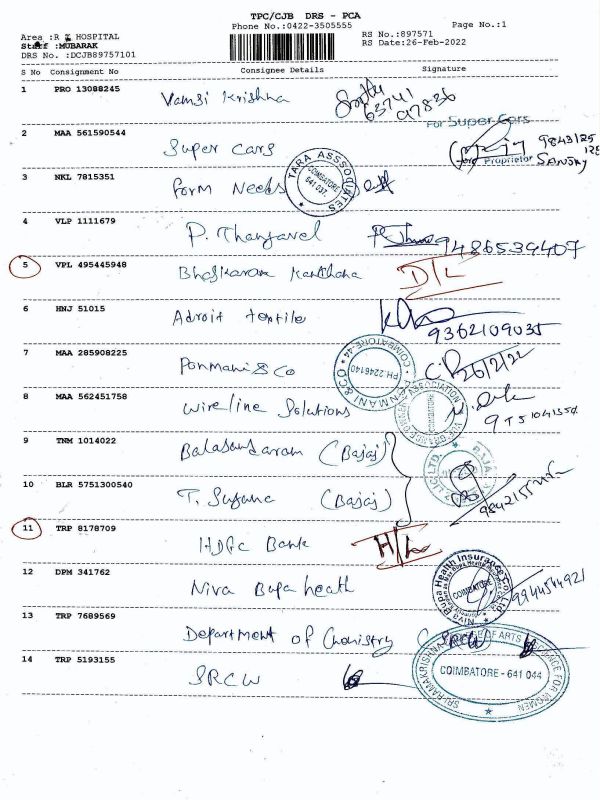 TPC/CJB DRS - PCA
Phone No.:0422-3505555 Page No.:1
Area :R K HOSPITAL RS No.:897571
Staff :MUBARAK RS Date:26-Feb-2022
DRS No. :DCJB89757101
S No Consignment No Consignee Details Signature
1 PRO 13088245 Vamsi Krishna 63741
97836
For Super Cars
2 MAA 561590544 Super cars 9843125
Proprietor SANJAY
3 NKL 7815351 Form Needs TARA ASSSOCIATES COIMBATORE 641 037.
4 VLP 1111679 P. Thangavel 9486539407
5 VPL 495445948 Bhaskaran Kanthana D/L
6 HNJ 51015 Adroit textile
9362109035
7 MAA 285908225 Ponmani & Co PENMMANI & CO COIMBATORE-44 PH: 2246140 26/2/22
8 MAA 562451758 Wireline Solutions COIMBATORE
9 TNM 1014022 Balasundaram (Bajaj)
10 BLR 5751300540 T. Sugana (Bajaj)
11 TRP 8178709 HDFC Bank
12 DPM 341762 Niva Bupa heath Niva Bupa Health Insurance Co. Ltd. COIMBATORE 9944544921
13 TRP 7689569 Department of Chemistry SRCW
14 TRP 5193155 SRCW SRI RAMAKRISHNA COLLEGE OF ARTS & SCIENCE FOR WOMEN COIMBATORE - 641 044